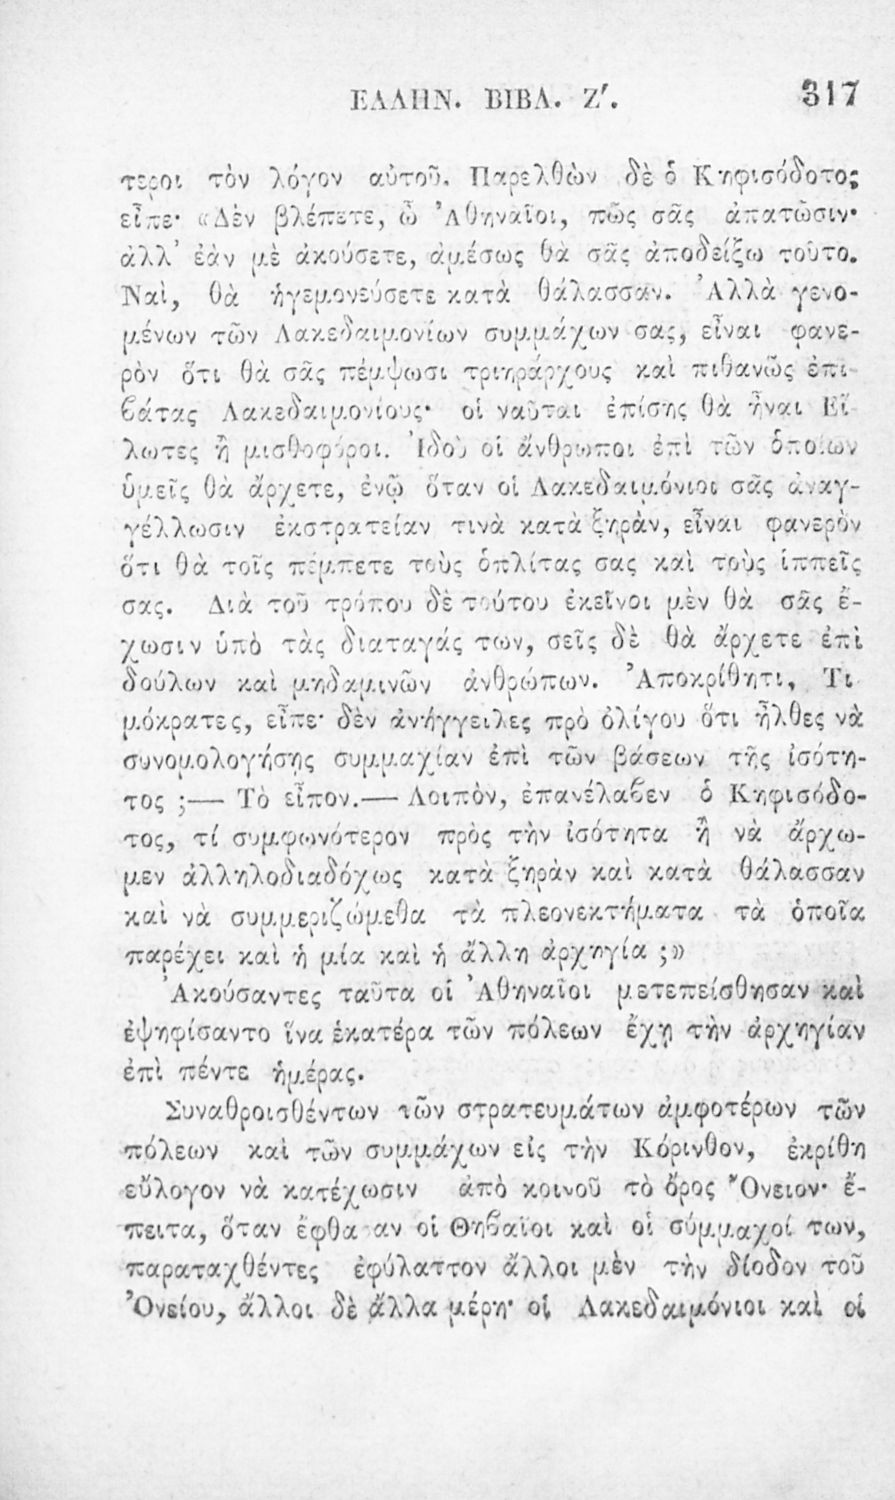 ΕΛΛΗΝ. ΒΙΒΛ. Ζʹ. 317
τεροι τὸν λόγον αὐτοῦ. Παρελθὼν δὲ ὁ Κηφισόδοτος
εἶπε· «Δὲν βλέπετε, ὦ Ἀθηναῖοι, πῶς σᾶς ἀπατῶσιν·
ἀλλ' ἐὰν μὲ ἀκούσετε, ἀμέσως θὰ σᾶς ἀποδείξω τοῦτο.
Ναὶ, θὰ ἡγεμονεύσετε κατὰ θάλασσαν. Ἀλλὰ γενο-
μένων τῶν Λακεδαιμονίων συμμάχων σας, εἶναι φανε-
ρὸν ὅτι θὰ σᾶς πέμψωσι τριηράρχους καὶ πιθανῶς ἐπι-
ϐάτας Λακεδαιμονίους· οἱ ναῦται ἐπίσης θὰ ἦναι Εἵ-
λωτες ἢ μισθοφόροι. Ἰδοὺ οἱ ἄνθρωποι ἐπὶ τῶν ὁποίων
ὑμεῖς θὰ ἄρχετε, ἐνῷ ὅταν οἱ Λακεδαιμόνιοι σᾶς ἀναγ-
γέλλωσιν ἐκστρατείαν τινὰ κατὰ ξηρὰν, εἶναι φανερὸν
ὅτι θὰ τοῖς πέμπετε τοὺς ὁπλίτας σας καὶ τοὺς ἱππεῖς
σας. Διὰ τοῦ τρόπου δὲ τούτου ἐκεῖνοι μὲν θὰ σᾶς ἔ-
χωσιν ὑπὸ τὰς διαταγάς των, σεῖς δὲ θὰ ἄρχετε ἐπὶ
δούλων καὶ μηδαμινῶν ἀνθρώπων. Ἀποκρίθητι, Τι
μόκρατες, εἶπε· δὲν ἀνήγγειλες πρὸ ὀλίγου ὅτι ἦλθες νὰ
συνομολογήσῃς συμμαχίαν ἐπὶ τῶν βάσεων τῆς ἰσότη-
τος ;— Τὸ εἶπον.— Λοιπὸν, ἐπανέλαϐεν ὁ Κηφισόδο-
τος, τί συμφωνότερον πρὸς τὴν ἰσότητα ἢ νὰ ἄρχω-
μεν ἀλληλοδιαδόχως κατὰ ξηρὰν καὶ κατὰ θάλασσαν
καὶ νὰ συμμεριζώμεθα τὰ πλεονεκτήματα τὰ ὁποῖα
παρέχει καὶ ἡ μία καὶ ἡ ἄλλη ἀρχηγία ;»
Ἀκούσαντες ταῦτα οἱ Ἀθηναῖοι μετεπείσθησαν καὶ
ἐψηφίσαντο ἵνα ἑκατέρα τῶν πόλεων ἔχῃ τὴν ἀρχηγίαν
ἐπὶ πέντε ἡμέρας.
Συναθροισθέντων τῶν στρατευμάτων ἀμφοτέρων τῶν
πόλεων καὶ τῶν συμμάχων εἰς τὴν Κόρινθον, ἐκρίθη
εὔλογον νὰ κατέχωσιν ἀπὸ κοινοῦ τὸ ὄρος Ὄνειον· ἔ-
πειτα, ὅταν ἔφθασαν οἱ Θηϐαῖοι καὶ οἱ σύμμαχοί των,
παραταχθέντες ἐφύλαττον ἄλλοι μὲν τὴν δίοδον τοῦ
Ὀνείου, ἄλλοι δὲ ἄλλα μέρη· οἱ Λακεδαιμόνιοι καὶ οἱ